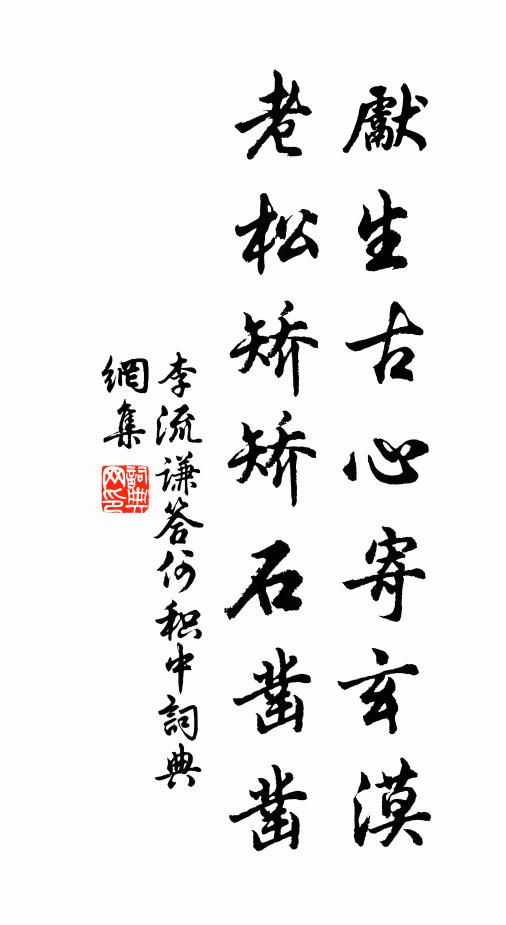 獻生古心寄玄漠
老松矫矫石凿凿
李流谦答何积中詞典
網集
詞典網印